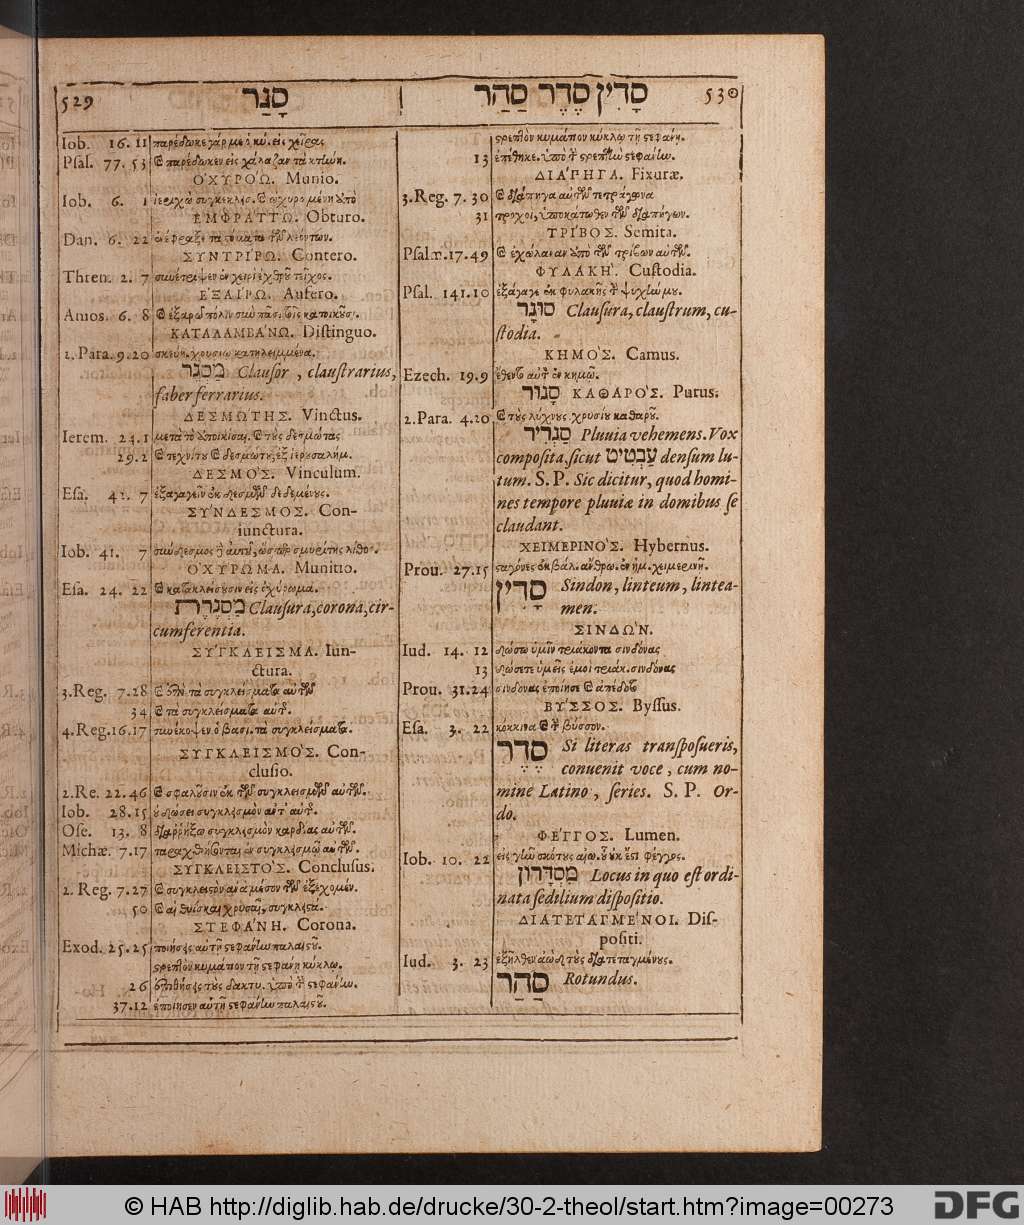 529 סָגַר
Iob. 16. 11 παρέδωκε γάρ με ὁ κύ. εἰς χεῖρας
Psal. 77. 53 καὶ παρέδωκεν εἰς χάλαζαν τὰ κτήνη.
ΟΧΥΡΟΏ. Munio.
Iob. 6. 1
ΕΜΦΡΑΤΤΩ. Obturo.
Dan. 6. 22 ἐνέφραξε τὰ στόματα τῶν λεόντων.
ΣΥΝΤΡΙΡΩ. Contero.
Thren. 2. 7 συνέτριψεν ἐν χειρὶ ἐχθροῦ τεῖχος.
ΕΞΑΙΡΩ. Aufero.
Amos. 6. 8 καὶ ἐξαρῶ πόλιν σὺν πᾶσι τοῖς κατοικοῦσι.
ΚΑΤΑΛΑΜΒΑΝΩ. Distinguo.
1. Para. 9. 20 σκεύη. χρυσίῳ κατηλειμμένα.
מַסְגֵּר Clausor, claustrarius,
faber ferrarius.
ΔΕΣΜΩΤΗΣ. Vinctus.
Ierem. 24. 1 μετὰ τὸ ἀποικίσαι. καὶ τοὺς δεσμώτας
29. 2 καὶ τεχνίτου καὶ δεσμώτου ἐξ ἱερουσαλήμ.
ΔΕΣΜΟΣ. Vinculum.
Esa. 42. 7 ἐξαγαγεῖν ἐκ δεσμῶν δεδεμένους.
ΣΥΝΔΕΣΜΟΣ. Con-
iunctura.
Iob. 41. 7 σύνδεσμος ὥσπερ σμυρίτης λίθος.
ΟΧΥΡΩΜΑ. Munitio.
Esa. 24. 22 καὶ κατακλείσουσιν εἰς ὀχύρωμα.
מִסְגֶּרֶת Clausura, corona, cir-
cumferentia.
ΣΥΓΚΛΕΙΣΜΑ. Iun-
ctura.
3. Reg. 7. 28 καὶ ἐπὶ τὰ συγκλείσματα αὐτῶν
34 καὶ τὰ συγκλείσματα αὐτ.
4. Reg. 16. 17 συνέκοψεν ὁ βασι. τὰ συγκλείσματα.
ΣΥΓΚΛΕΙΣΜΟΣ. Con-
clusio.
2. Re. 22. 46 καὶ σφαλοῦσιν ἐκ τῶν συγκλεισμῶν αὐτῶν.
Iob. 28. 15 οὐ δώσει συγκλεισμὸν ἀντ' αὐτ.
Ose. 13. 8 διαρρήξω συγκλεισμὸν καρδίας αὐτῶν.
Michæ. 7. 17 ταραχθήσονται ἐν συγκλεισμῷ αὐτῶν.
ΣΥΓΚΛΕΙΣΤΟΣ. Conclusus.
2. Reg. 7. 27 καὶ συγκλειστὸν ἀναμέσον τῶν ἐξεχομέν.
50 καὶ αἱ θυΐσκαι χρυσαῖ, συγκλειστά.
ΣΤΕΦΑΝΗ. Corona.
Exod. 25. 25 ποιήσεις αὐτῇ στεφάνην παλαιστοῦ.
στρεπτὸν κυμάτιον τῇ στεφάνῃ κύκλῳ.
26 ἐπιθήσεις τοὺς δακτυ. ὑπὸ τ στεφάνην.
37. 12 ἐποίησεν αὐτῇ στεφάνην παλαιστοῦ.
סָדִין סֶדֶר סַהַר 530
στρεπτὸν κυμάτιον κύκλῳ τῇ στεφάνῃ.
13 ἐπέθηκε. ὑπὸ τ στρεπτὴν στεφάνην.
ΔΙΑΠΗΓΑ. Fixuræ.
3. Reg. 7. 30 καὶ διάπηγα αὐτῶν τετράγωνα
31 τροχοί, ὑποκάτωθεν τῶν διαπήγων.
ΤΡΙΒΟΣ. Semita.
Psal. 17. 49 καὶ ἐχώλαιναν ἀπὸ τῶν τρίβων αὐτῶν.
ΦΥΛΑΚΗ. Custodia.
Psal. 141. 10 ἐξάγαγε ἐκ φυλακῆς τ ψυχήν μου.
סוּגָר Clausura, claustrum, cu-
stodia.
ΚΗΜΟΣ. Camus.
Ezech. 19. 9 ἔθεντο αὐτ ἐν κημῷ.
סָגוּר ΚΑΘΑΡΟΣ. Purus.
2. Para. 4. 20 καὶ τοὺς λύχνους. χρυσίου καθαροῦ.
סַגְרִיר Pluuia vehemens. Vox
composita, sicut עַבְטִיט densum lu-
tum. S. P. Sic dicitur, quod homi-
nes tempore pluuiæ in domibus se
claudant.
ΧΕΙΜΕΡΙΝΟΣ. Hybernus.
Prou. 27. 15 σταγόνες ἐκβάλ. ἄνθρω. ἐν ἡμ. χειμερινῇ.
סָדִין Sindon, linteum, lintea-
men.
ΣΙΝΔΩΝ.
Iud. 14. 12 δώσω ὑμῖν τριάκοντα σινδόνας
13 δώσετε ὑμεῖς ἐμοὶ τριάκ. σινδόνας
Prou. 31. 24 σινδόνας ἐποίησε καὶ ἀπέδοτο
ΒΥΣΣΟΣ. Byssus.
Esa. 3. 22 κόκκινα καὶ τ βύσσον.
סֶדֶר Si literas transposueris,
conuenit voce, cum no-
mine Latino, series. S. P. Or-
do.
ΦΕΓΓΟΣ. Lumen.
Iob. 10. 22 εἰς γῆν σκότους αἰω. οὗ οὐκ ἔστι φέγγος.
מִסְדְּרוֹן Locus in quo est ordi-
nata sedilium dispositio.
ΔΙΑΤΕΤΑΓΜΕΝΟΙ. Dis-
positi.
Iud. 3. 23 ἐξῆλθεν τοὺς διατεταγμένους.
סַהַר Rotundus.
© HAB http://diglib.hab.de/drucke/30-2-theol/start.htm?image=00273 DFG